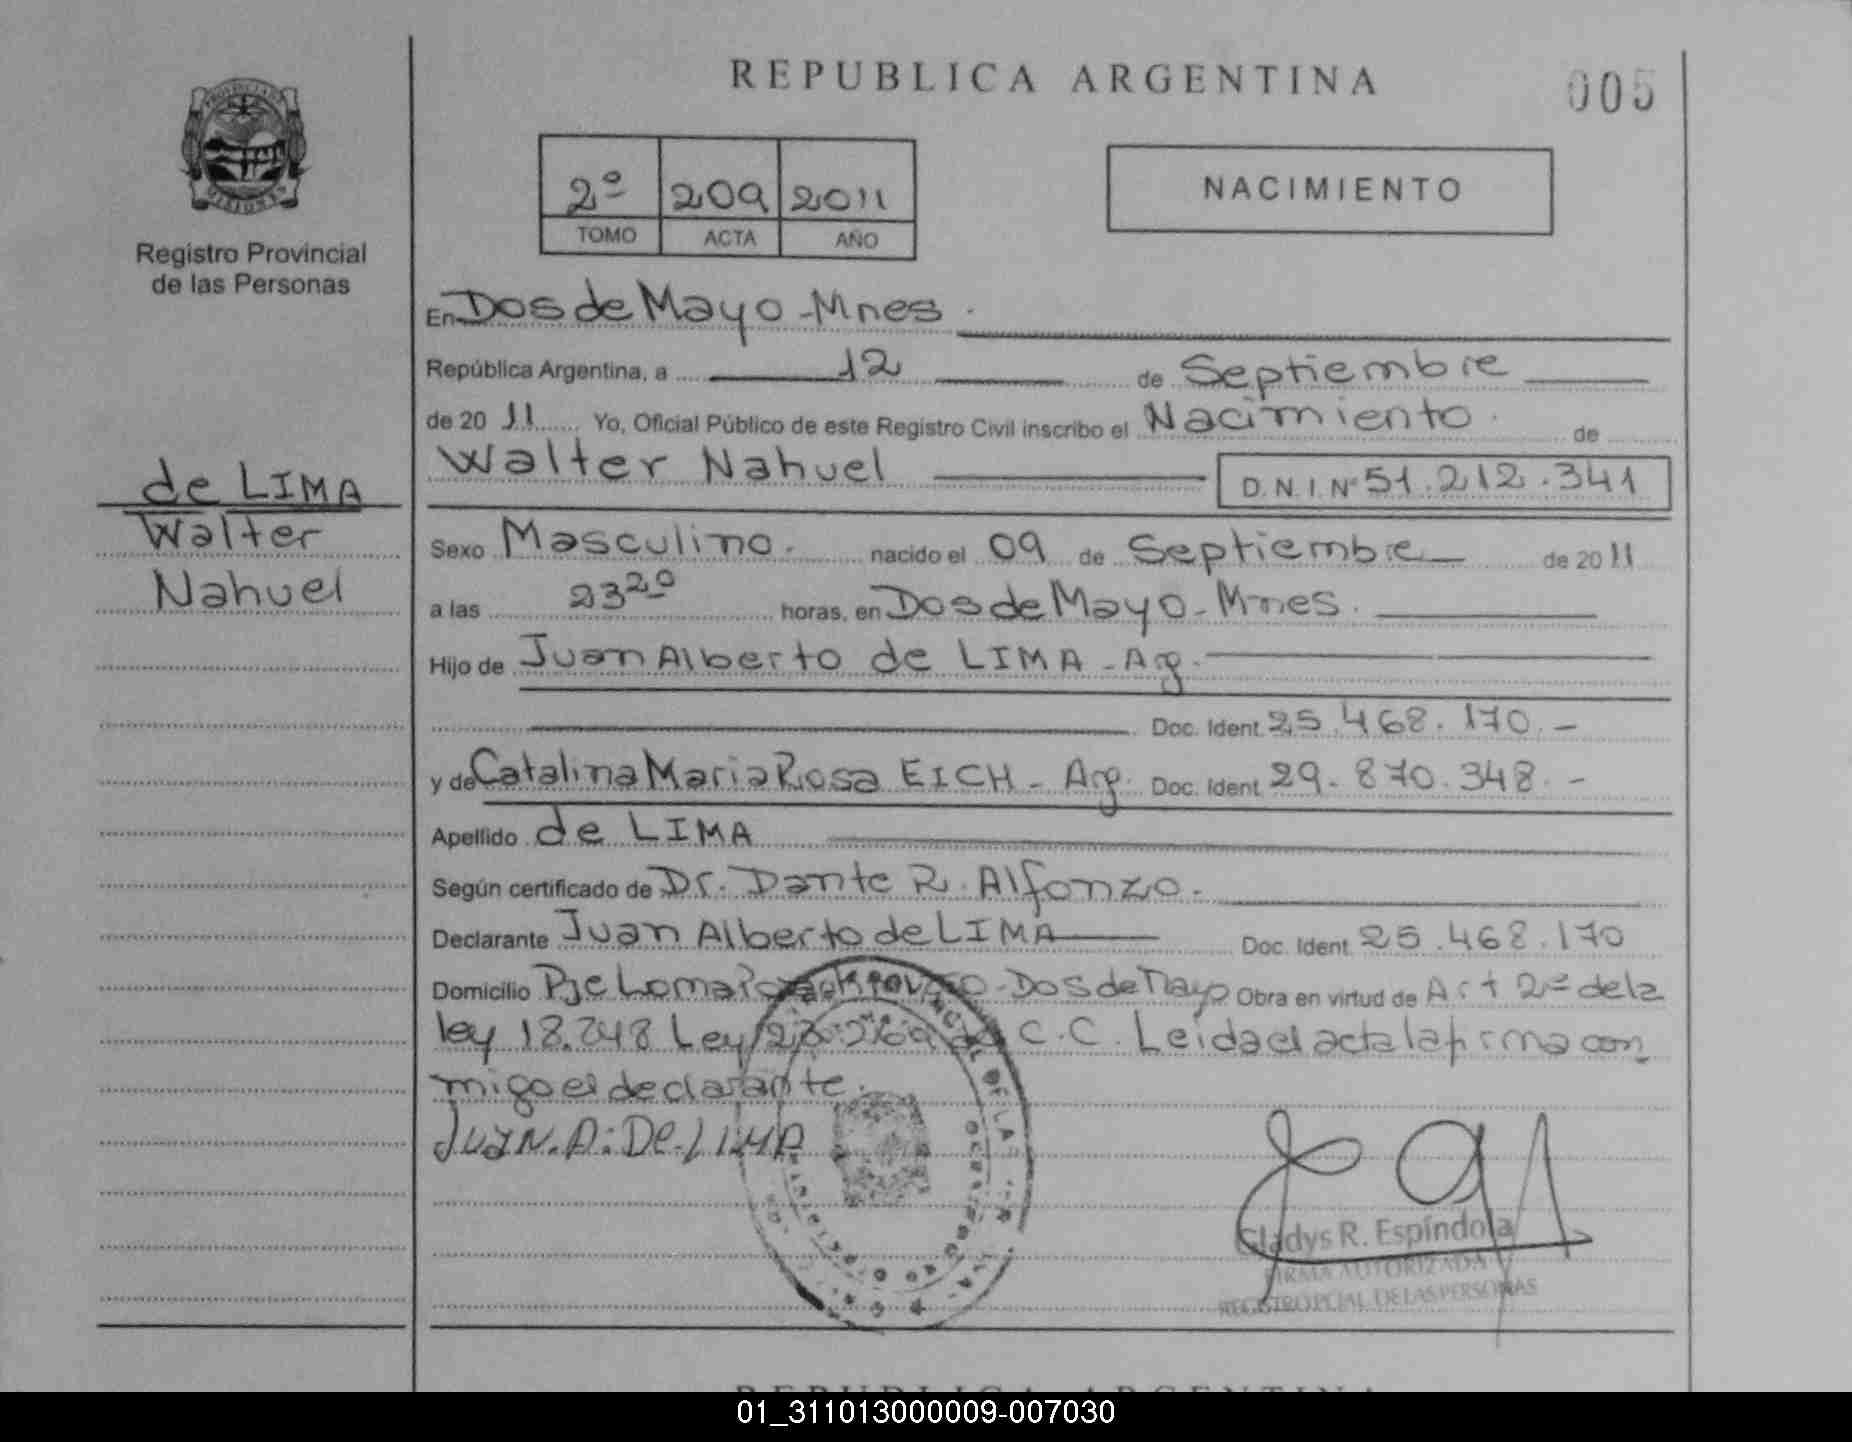 REPUBLICA ARGENTINA
005
PROVINCIA DE
MISIONES
Registro Provincial
de las Personas
2º 209 2011
TOMO ACTA AÑO
NACIMIENTO
En Dos de Mayo - Mnes.
República Argentina, a 12 de Septiembre
de 20 11 Yo, Oficial Público de este Registro Civil inscribo el Nacimiento. de
Walter Nahuel D.N.I. Nº 51.212.341
de LIMA
Walter
Nahuel
Sexo Masculino. nacido el 09 de Septiembre de 20 11
a las 23 20 horas, en Dos de Mayo - Mnes.
Hijo de Juan Alberto de LIMA - Arg.
Doc. Ident. 25.468.170.-
y de Catalina Maria Rosa EICH - Arg. Doc. Ident. 29.870.348.-
Apellido de LIMA
Según certificado de Dr. Dante R. Alfonzo.
Declarante Juan Alberto de LIMA Doc. Ident. 25.468.170
Domicilio Pje Loma - Dos de Mayo Obra en virtud de Art 2º de la
ley 18.248 Ley 23.264 C.C. Leida el acta la firma con
migo el declarante.
JUAN.A.De.LIMA
Gladys R. Espíndola
FIRMA AUTORIZADA
REGISTRO PCIAL. DE LAS PERSONAS
REPUBLICA ARGENTINA
01_311013000009-007030